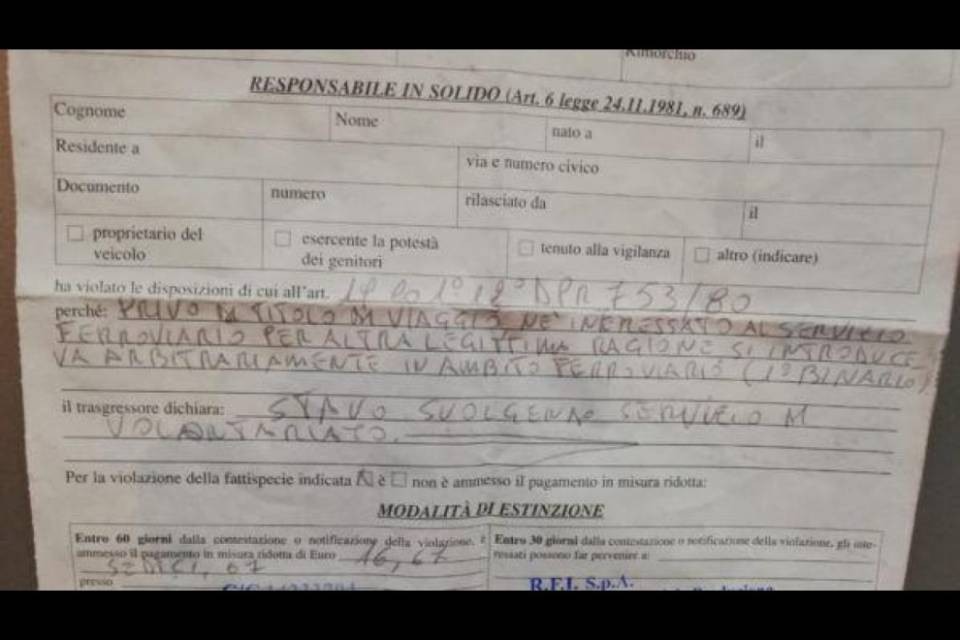 Rimorchio
RESPONSABILE IN SOLIDO (Art. 6 legge 24.11.1981, n. 689)
Cognome Nome nato a il
Residente a via e numero civico
Documento numero rilasciato da il
proprietario del veicolo esercente la potestà dei genitori tenuto alla vigilanza altro (indicare)
ha violato le disposizioni di cui all'art. DPR 753/80
perché: PRIVO DI TITOLO DI VIAGGIO NE' INERESSATO AL SERVIZIO
FERROVIARIO PER ALTRA LEGITTIMA RAGIONE SI INTRODUCE
VA ARBITRARIAMENTE IN AMBITO FERROVIARIO (1° BINARIO)
il trasgressore dichiara: STAVO SVOLGENDO SERVIZIO DI
VOLONTARIATO.
Per la violazione della fattispecie indicata è non è ammesso il pagamento in misura ridotta:
MODALITÀ DI ESTINZIONE
Entro 60 giorni dalla contestazione o notificazione della violazione, è
ammesso il pagamento in misura ridotta di Euro 16,67
SEDICI, 67
presso
Entro 30 giorni dalla contestazione o notificazione della violazione, gli inte-
ressati possono far pervenire a:
R.F.I. S.p.A.